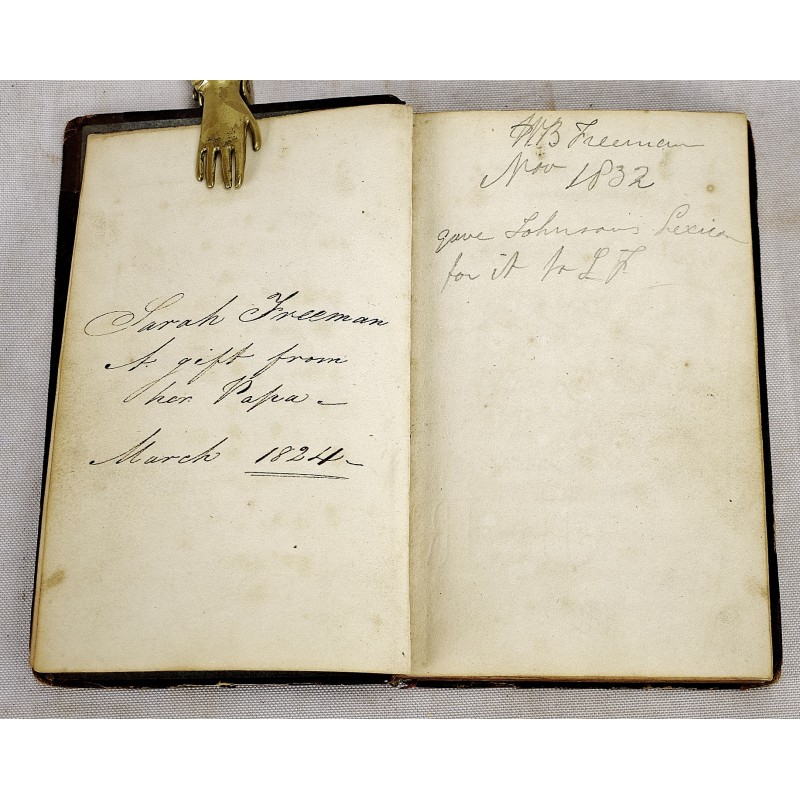 Sarah Freeman
A gift from
her Papa –
March 1824 –
WB Freeman
Nov 1832
gave Johnson's Lexicon
for it to L F